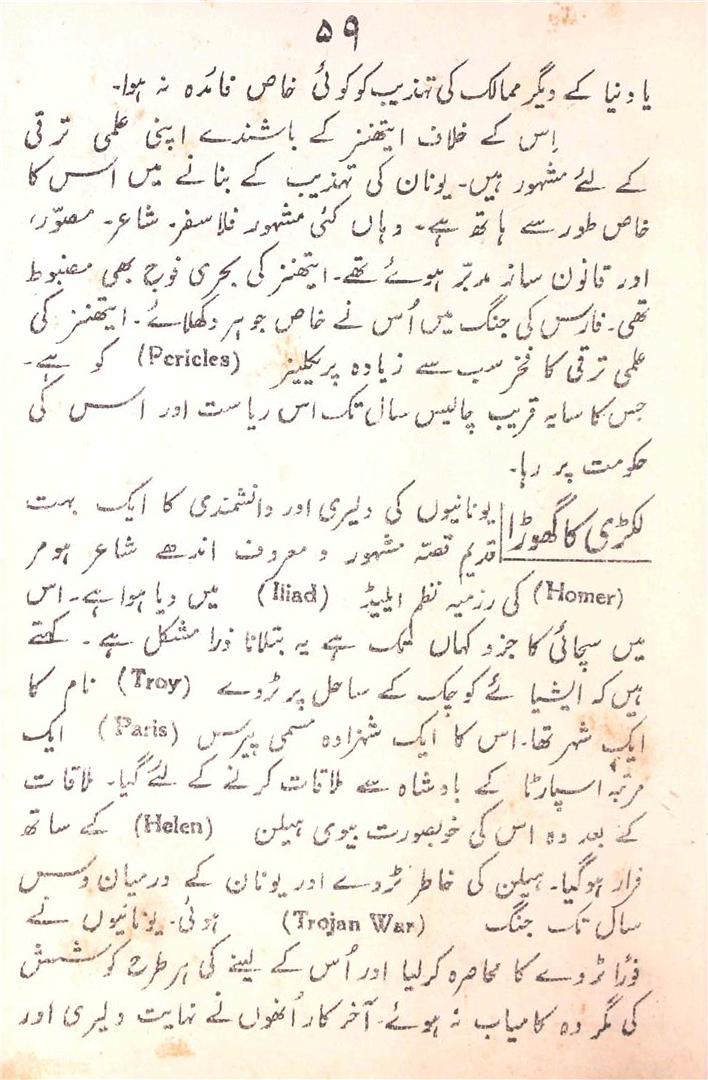 ۵۹
یا دنیا کے دیگر ممالک کی تہذیب کو کوئی خاص فائدہ نہ ہوا۔
اِس کے خلاف ایتھنز کے باشندے اپنی علمی ترقی
کے لئے مشہور ہیں۔ یونان کی تہذیب کے بنانے میں اس کا
خاص طور سے ہاتھ ہے۔ وہاں کئی مشہور فلاسفر۔ شاعر۔ مصوّر،
اور قانون ساز مدبّر ہوئے تھے۔ ایتھنز کی بحری فوج بھی مضبوط
تھی۔ فارس کی جنگ میں اُس نے خاص جوہر دکھلائے۔ ایتھنز کی
علمی ترقی کا فخر سب سے زیادہ پریکلیز (Pericles) کو ہے۔
جس کا سایہ قریب چالیس سال تک اس ریاست اور اس کی
حکومت پر رہا۔
لکڑی کا گھوڑا
یونانیوں کی دلیری اور دانشمندی کا ایک بہت
قدیم قصّہ مشہور و معروف اندھے شاعر ہومر
(Homer) کی رزمیہ نظم ایلیڈ (Iliad) میں دیا ہوا ہے۔ اس
میں سچائی کا جزو کہاں تک ہے یہ بتلانا ذرا مشکل ہے۔ کہتے
ہیں کہ ایشیائے کوچک کے ساحل پر ٹروے (Troy) نام کا
ایک شہر تھا۔ اس کا ایک شہزادہ مسمی پیرس (Paris) ایک
مرتبہ اسپارٹا کے بادشاہ سے ملاقات کرنے کے لئے گیا۔ ملاقات
کے بعد وہ اس کی خوبصورت بیوی ہیلن (Helen) کے ساتھ
فرار ہوگیا۔ ہیلن کی خاطر ٹروے اور یونان کے درمیان دس
سال تک جنگ (Trojan War) ہوئی۔ یونانیوں نے
فوراً ٹروے کا محاصرہ کرلیا اور اُس کے لینے کی ہر طرح کوشش
کی مگر وہ کامیاب نہ ہوئے۔ آخر کار اُنھوں نے نہایت دلیری اور